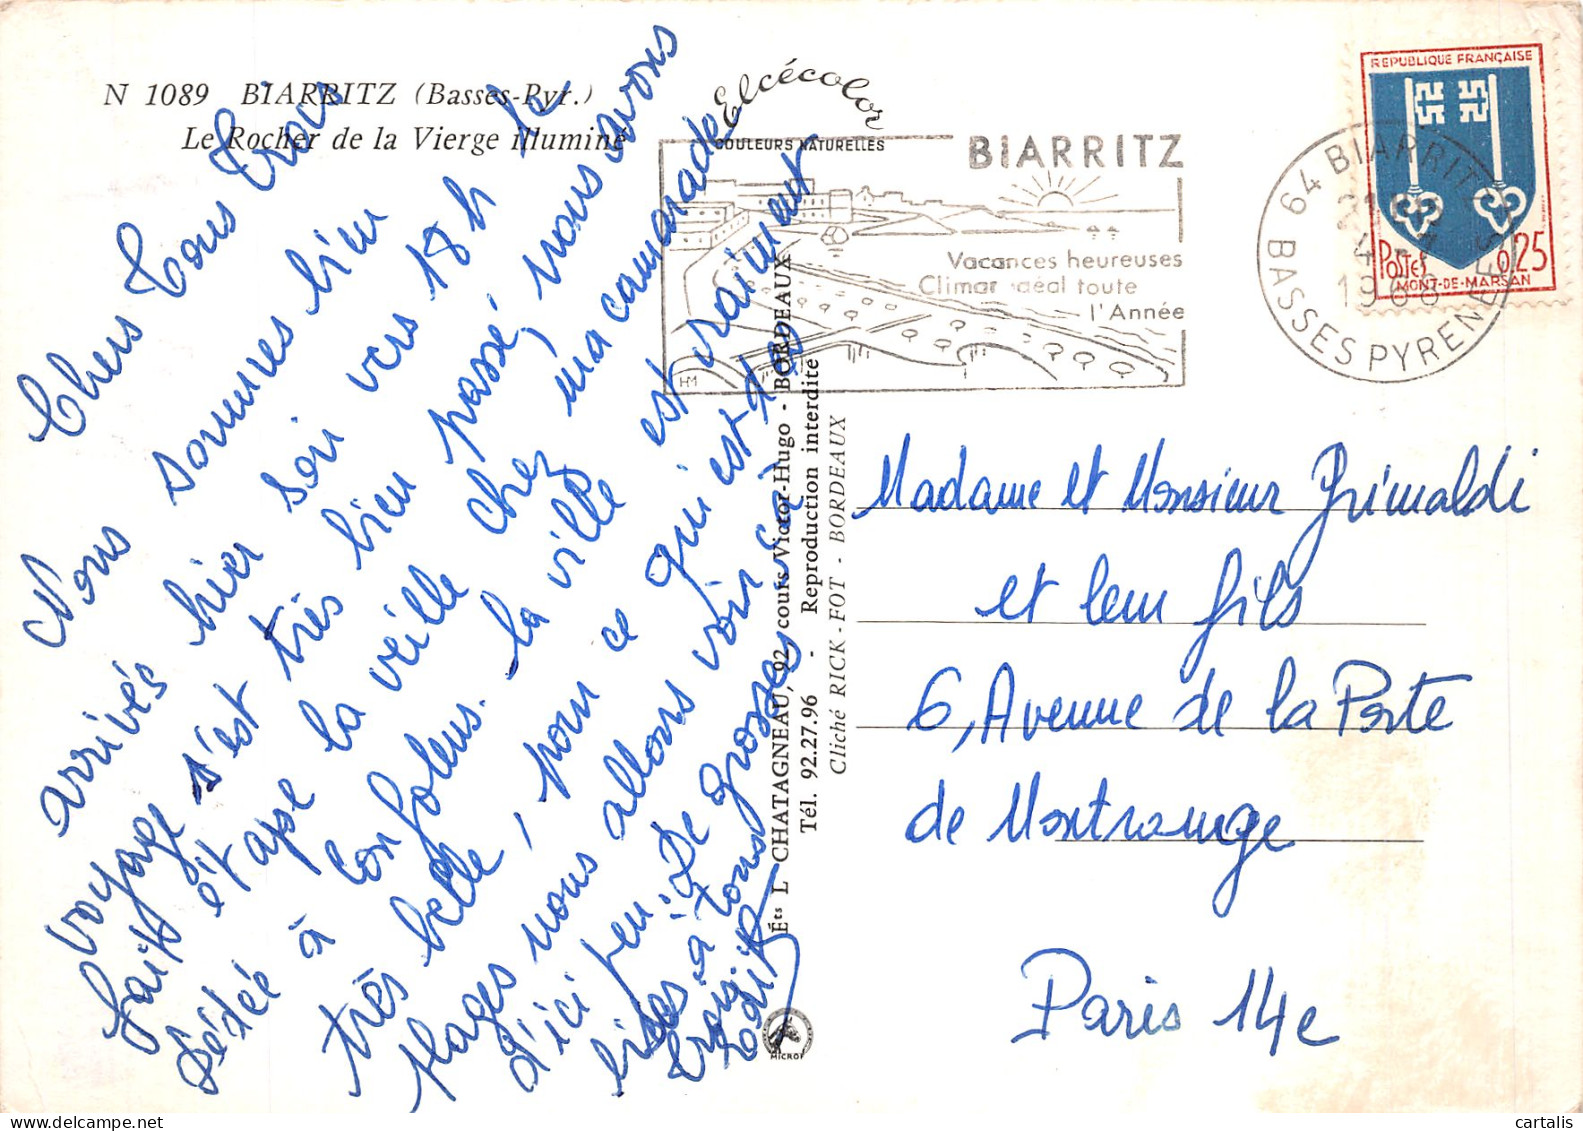 N 1089 BIARRITZ (Basses-Pyr.)
Le Rocher de la Vierge illuminé
Elcécolor
COULEURS NATURELLES
BIARRITZ
Vacances heureuses
Climat idéal toute
l'Année
HM
64 BIARRITZ
4
1968
BASSES PYRENEES
REPUBLIQUE FRANÇAISE
Postes 0,25
MONT-DE-MARSAN
Chers Tous Trois
Nous sommes bien
arrivés hier soir vers 18h le
voyage s'est très bien passé, nous avons
fait étape la veille chez ma camarade
Dédée à Confolens. la ville est vraiment
très belle, pour ce qui est des
plages nous allons voir ça
d'ici peu. De grosses
bises à tous
trois
Éts L CHATAGNEAU, 92 cours Victor-Hugo - BORDEAUX
Tél. 92.27.96 - Reproduction interdite
Cliché RICK-FOT - BORDEAUX
MICROF
Madame et Monsieur Grimaldi
et leur fils
6, Avenue de la Porte
de Montrouge
Paris 14e
cartalis